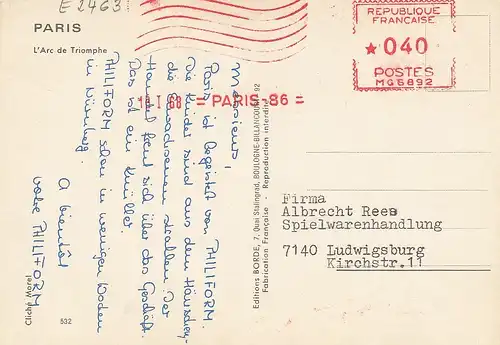 E 2463
PARIS
L'Arc de Triomphe
REPUBLIQUE
FRANCAISE
★040
POSTES
MG6892
-1.-1 68 = PARIS-86 =
Messieurs,
Paris ist begeistert von PHILIFORM.
Die Kinder sind aus dem Häuschen,
die Erwachsenen strahlen. Der
Handel freut sich über das Geschäft.
Das ist ein Knüller.
PHILIFORM schon in wenigen Wochen
in Nürnberg.
A bientôt
votre PHILIFORM
Editions BORDE, 7, Quai Stalingrad, BOULOGNE-BILLANCOURT 92
Fabrication Française - Reproduction interdite
Firma
Albrecht Rees
Spielwarenhandlung
7140 Ludwigsburg
Kirchstr.11
Cliché Morel
532